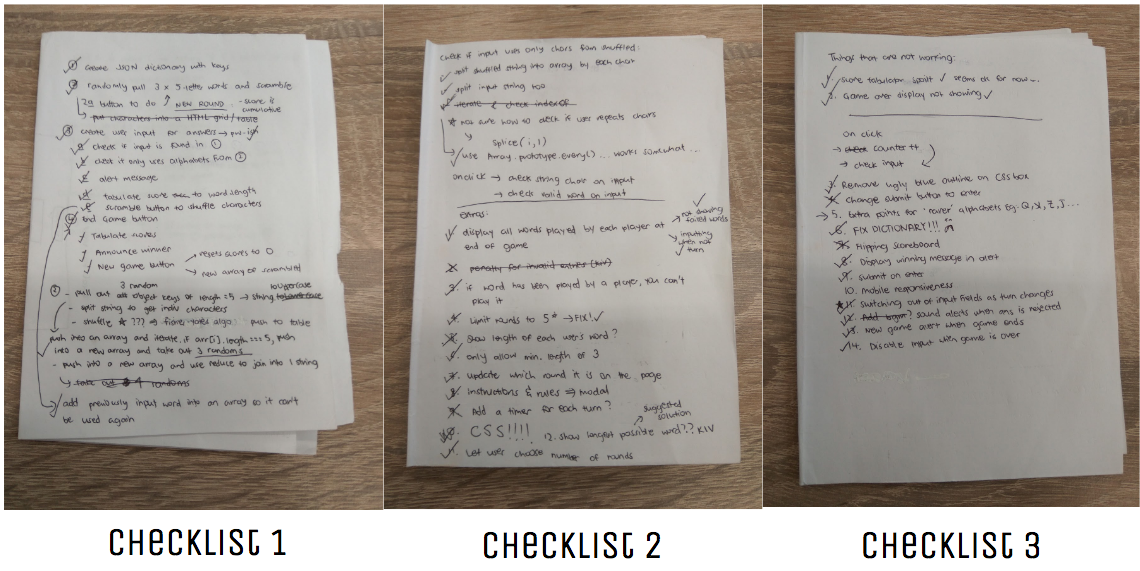 ① create JSON dictionary with keys
② randomly pull 3 x 5-letter words and scramble
2a button to do NEW ROUND - score is cumulative
put characters into a HTML grid/table
③ create user input for answers → pw-ish
check if input is found in ①
check it only uses alphabets from ②
alert message
tabulate score to word length
scramble button to shuffle characters
④ End Game button
Tabulate scores
Announce winner → resets scores to 0
New game button → new array of scrambled
3 random lowercase
② - pull out object keys of length = 5 → string
- split string to get indiv characters
- shuffle * ??? ⇒ fisher-yates algo: push to table
push into an array and iterate, if arr[i].length === 5, push
into a new array and take out 3 randoms
- push into a new array and use reduce to join into 1 string
↳ take out 4 randoms
add previously input word into an array so it can't
be used again
check if input uses only chars from shuffled:
split shuffled string into array by each char
split input string too
iterate & check indexOf
* not sure how to check if user repeats chars
splice(i,1)
use Array.prototype.every()... works somewhat...
onclick → check string char on input
→ check valid word on input
extras.
display all words played by each player at end of game
→ not showing failed words
→ inputting when not turn
2. penalty for invalid entries (KIV)
3. if word has been played by a player, you can't
play it
4. Limit rounds to 5* → FIX!
5. Show length of each user's word?
6. only allow min. length of 3
7. update which round it is on the page
8. instructions & rules ⇒ modal
9. Add a timer for each turn?
10. CSS!!!! 12. show longest possible word?? KIV
→ suggested solution
11. Let user choose number of rounds
Things that are not working:
1. Score tabulation spoilt ✓ seems ok for now...
2. Game over display not showing ✓
on click
→ check counter ++
→ check input
3. Remove ugly blue outline on CSS box
4. Change submit button to enter
→ 5. Extra points for "rarer" alphabets eg. Q, X, Z, J...
6. FIX DICTIONARY!!!
7. Flipping scoreboard
8. Display winning message in alert
9. submit on enter
10. mobile responsiveness
11. Switching out of input fields as turn changes
12. sound alerts when ans is rejected
13. New game alert when game ends
14. Disable input when game is over
CHECKLIST 1
CHECKLIST 2
CHECKLIST 3